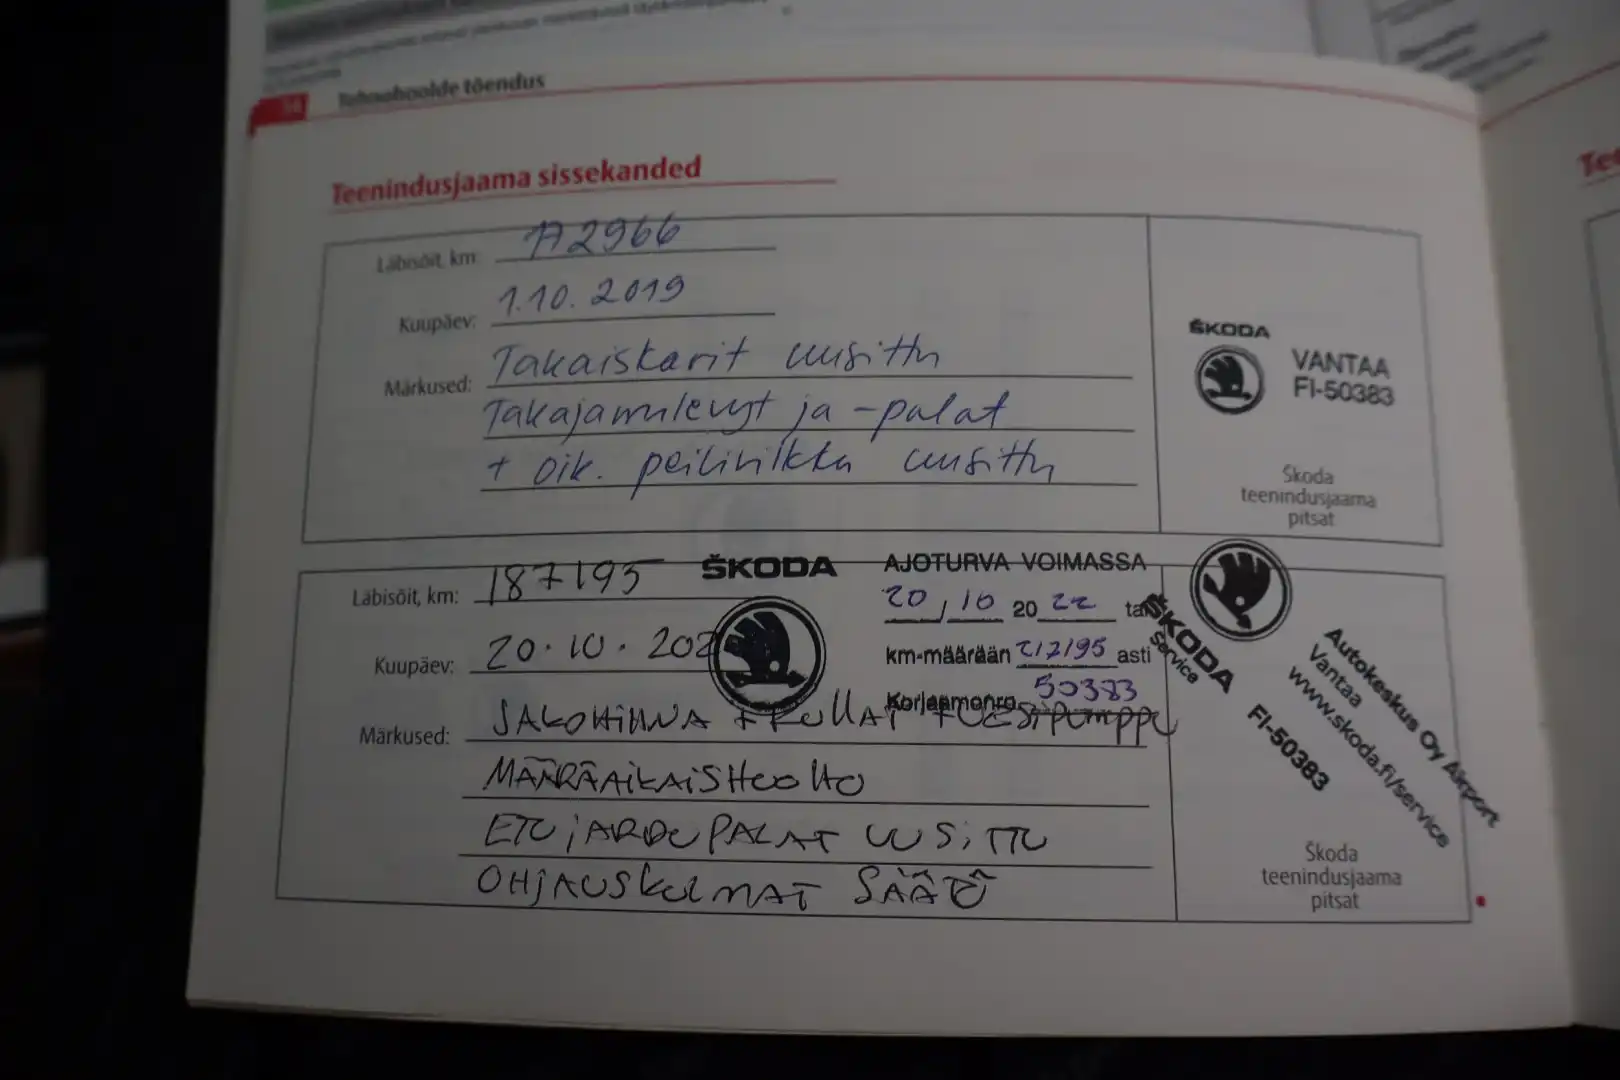 Tehnohoolde tõendus
Teenindusjaama sissekanded
Läbisõit, km: 172966
Kuupäev: 1.10.2019
Märkused: Takaiskarit uusittu
Takajarrulevyt ja -palat
+ oik. peilivilkku uusittu
ŠKODA
VANTAA
FI-50383
Škoda
teenindusjaama
pitsat
Läbisõit, km: 187195
Kuupäev: 20.10.202
Märkused: JAKOHIHNA + RULLAT + VESIPUMPPU
MÄÄRÄAIKAISHUOLTO
ETUJARRUPALAT UUSITTU
OHJAUSKULMAT SÄÄTÖ
ŠKODA
AJOTURVA VOIMASSA
20 / 10 2022 tai
km-määrään 217195 asti
Korjaamonro 50383
ŠKODA
Service
FI-50383
Autokeskus Oy Airport
Vantaa
www.skoda.fi/service
Škoda
teenindusjaama
pitsat